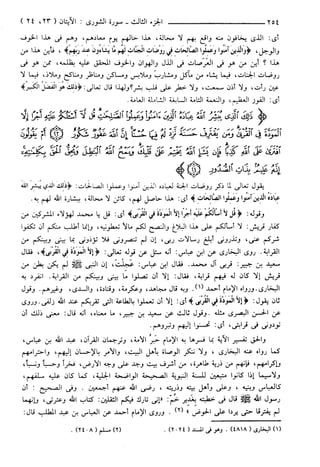 ٢٥٤ الجزء الثالث - سورة الشورى : الآيتان (٢٣، ٢٤)
أي: الذي يخافون منه واقع بهم لا محالة، هذا حالهم يوم معادهم، وهم في هذا الخوف
والوجل، ﴿وَالَّذِينَ آمَنُوا وَعَمِلُوا الصَّالِحَاتِ فِي رَوْضَاتِ الْجَنَّاتِ لَهُم مَّا يَشَاءُونَ عِندَ رَبِّهِمْ﴾، فأين هذا من
هذا ؟ أين من هو في العَرَصات في الذل والهوان والخوف المحقق عليه بظلمه، ممن هو في
روضات الجنات، فيما يشاء من مآكل ومشارب وملابس ومساكن ومناظر ومناكح وملاذ، فيما لا
عين رأت، ولا أذن سمعت، ولا خطر على قلب بشر؟ ولهذا قال تعالى: ﴿ذَلِكَ هُوَ الْفَضْلُ الْكَبِيرُ﴾
أي: الفوز العظيم، والنعمة التامة السابغة الشاملة العامة.
ذَلِكَ الَّذِي يُبَشِّرُ اللَّهُ عِبَادَهُ الَّذِينَ آمَنُوا وَعَمِلُوا الصَّالِحَاتِ قُل لَّا أَسْأَلُكُمْ عَلَيْهِ أَجْرًا إِلَّا
الْمَوَدَّةَ فِي الْقُرْبَى وَمَن يَقْتَرِفْ حَسَنَةً نَّزِدْ لَهُ فِيهَا حُسْنًا إِنَّ اللَّهَ غَفُورٌ شَكُورٌ أَمْ يَقُولُونَ
افْتَرَى عَلَى اللَّهِ كَذِبًا فَإِن يَشَإِ اللَّهُ يَخْتِمْ عَلَى قَلْبِكَ وَيَمْحُ اللَّهُ الْبَاطِلَ وَيُحِقُّ الْحَقَّ بِكَلِمَاتِهِ
إِنَّهُ عَلِيمٌ بِذَاتِ الصُّدُورِ
يقول تعالى لما ذكر روضات الجنة لعباده الذين آمنوا وعملوا الصالحات: ﴿ذَلِكَ الَّذِي يُبَشِّرُ اللَّهُ
عِبَادَهُ الَّذِينَ آمَنُوا وَعَمِلُوا الصَّالِحَاتِ﴾ أي: هذا حاصل لهم، كائن لا محالة، ببشارة الله لهم به.
وقوله: ﴿قُل لَّا أَسْأَلُكُمْ عَلَيْهِ أَجْرًا إِلَّا الْمَوَدَّةَ فِي الْقُرْبَى﴾ أي: قل يا محمد لهؤلاء المشركين من
كفار قريش: لا أسألكم على هذا البلاغ والنصح لكم مالًا تعطونيه، وإنما أطلب منكم أن تكفوا
شركم عني، وتذروني أبلغ رسالات ربي، إن لم تنصروني فلا تؤذوني بما بيني وبينكم من
القرابة. روى البخاري عن ابن عباس: أنه سئل عن قوله تعالى: ﴿إِلَّا الْمَوَدَّةَ فِي الْقُرْبَى﴾، فقال
سعيد بن جبير: قربى آل محمد. فقال ابن عباس: عَجِلْتَ، إن النبي ﷺ لم يكن بطن من
قريش إلا كان له فيهم قرابة، فقال: إلا أن تصلوا ما بيني وبينكم من القرابة. انفرد به
البخاري. ورواه الإمام أحمد (١). وبه قال مجاهد، وعكرمة، وقتادة، والسدي، وغيرهم. وقول
ثان يقول: ﴿إِلَّا الْمَوَدَّةَ فِي الْقُرْبَى﴾ أي: إلا أن تعملوا بالطاعة التي تقربكم عند الله زلفى. وروي
عن الحسن البصري مثله. وقول ثالث عن سعيد بن جبير، ما معناه، أنه قال: معنى ذلك أن
تودوني في قرابتي، أي: تحسنوا إليهم وتبروهم.
والحق تفسير الآية بما فسرها به الإمام حَبر الأمة، وترجمان القرآن، عبد الله بن عباس،
كما رواه عنه البخاري ، ولا ننكر الوصاة بأهل البيت، والأمر بالإحسان إليهم، واحترامهم
وإكرامهم، فإنهم من ذرية طاهرة، من أشرف بيت وجد على وجه الأرض، فخراً وحسباً ونسباً،
ولاسيما إذا كانوا متبعين للسنة النبوية الصحيحة الواضحة الجلية، كما كان عليه سلفهم،
كالعباس وبنيه ، وعلي وأهل بيته وذريته ، رضي الله عنهم أجمعين . وفي الصحيح : أن
رسول الله ﷺ قال في خطبته بغدير خُم: «إني تارك فيكم الثقلين: كتاب الله وعترتي، وإنهما
لم يفترقا حتى يردا على الحوض » (٢) . وروى الإمام أحمد عن العباس بن عبد المطلب قال:
(١) البخاري (٤٨١٨) . وهو في المسند (٢٠٢٤) . (٢) مسلم (٢٤٠٨) .